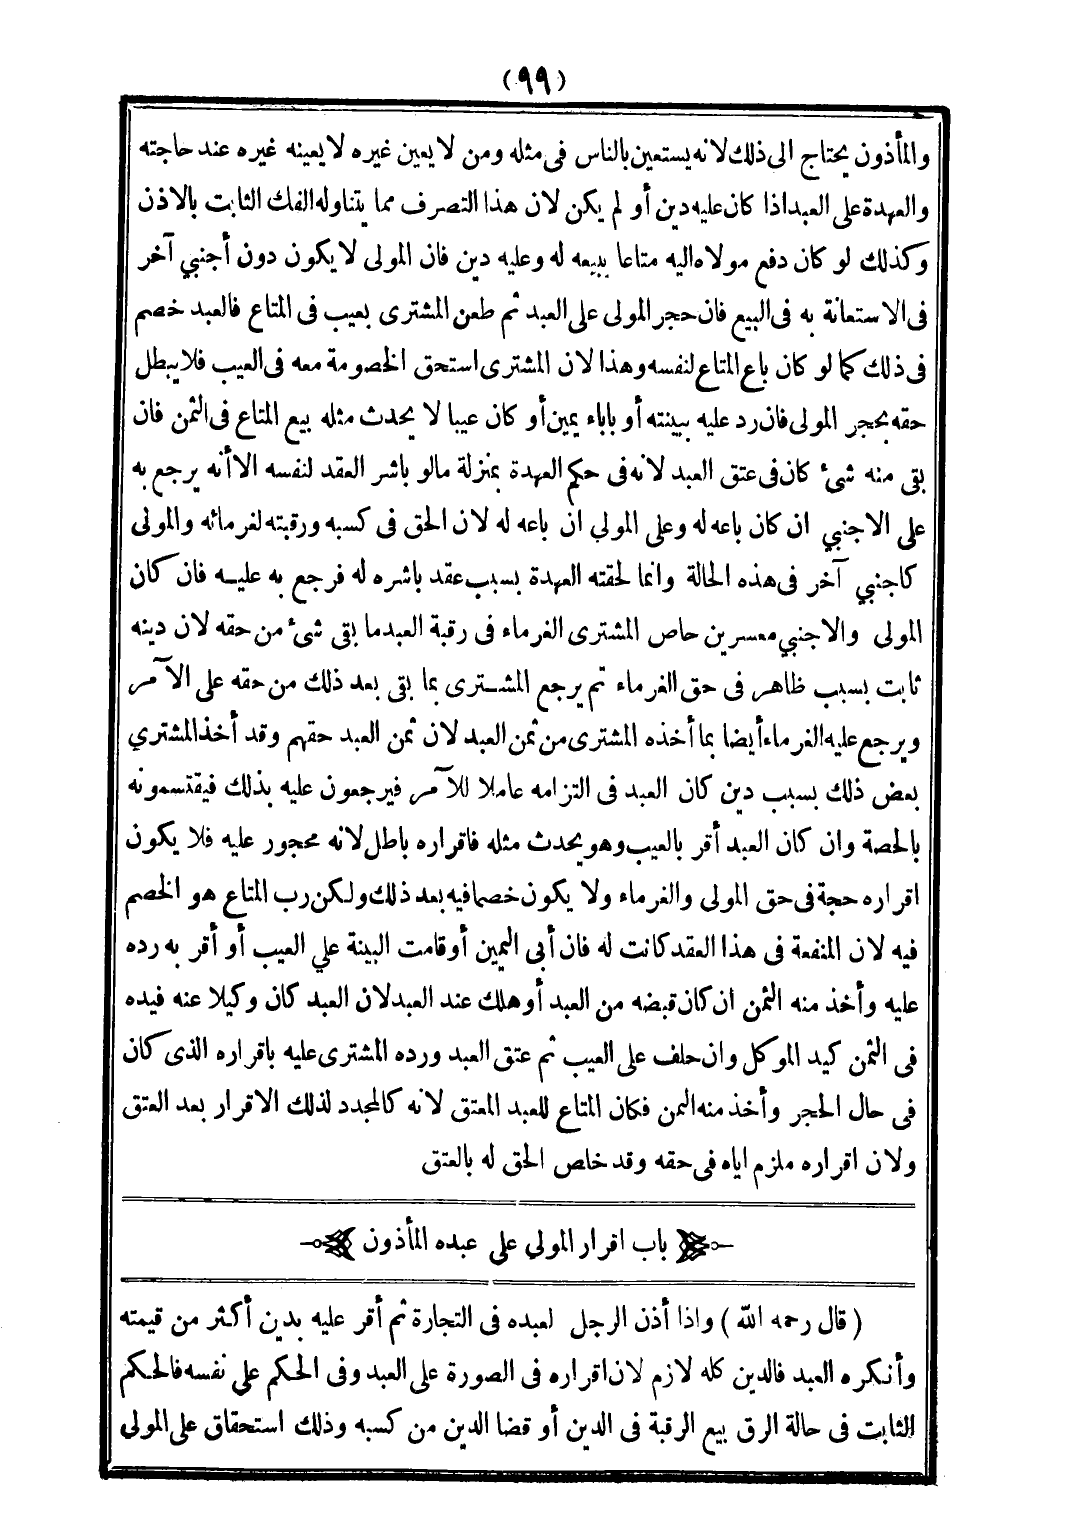 (٩٩)
والمأذون يحتاج الى ذلك لانه يستعين بالناس فى مثله ومن لا يعين غيره لا يعينه غيره عند حاجته
والعهدة على العبد اذا كان عليه دين أو لم يكن لان هذا التصرف مما يتناوله الفك الثابت بالاذن
وكذلك لو كان دفع مولاه اليه متاعا يبيعه له وعليه دين فان المولى لا يكون دون أجنبي آخر
فى الاستعانة به فى البيع فان حجر المولى على العبد ثم طعن المشترى بعيب فى المتاع فالعبد خصم
فى ذلك كما لو كان باع المتاع لنفسه وهذا لان المشترى استحق الخصومة معه فى العيب فلا يبطل
حقه بحجر المولى فان رد عليه ببينته أو باباء يمين أو كان عيبا لا يحدث مثله بيع المتاع فى الثمن فان
بقى منه شئ كان فى عتق العبد لانه فى حكم العهدة بمنزلة مالو باشر العقد لنفسه الا أنه يرجع به
على الاجنبي ان كان باعه له وعلى المولي ان باعه له لان الحق فى كسبه ورقبته لغرمائه والمولى
كاجنبي آخر فى هذه الحالة وانما لحقته العهدة بسبب عقد باشره له فرجع به عليه فان كان
المولى والاجنبي معسرين حاص المشترى الغرماء فى رقبة العبد ما بقى شئ من حقه لان دينه
ثابت بسبب ظاهر فى حق الغرماء ثم يرجع المشترى بما بقى بعد ذلك من حقه على الآمر
ويرجع عليه الغرماء أيضا بما أخذه المشترى من ثمن العبد لان ثمن العبد حقهم وقد أخذ المشتري
بعض ذلك بسبب دين كان العبد فى التزامه عاملا للآمر فيرجعون عليه بذلك فيقتسمونه
بالحصة وان كان العبد أقر بالعيب وهو يحدث مثله فاقراره باطل لانه محجور عليه فلا يكون
اقراره حجة فى حق المولى والغرماء ولا يكون خصما فيه بعد ذلك ولكن رب المتاع هو الخصم
فيه لان المنفعة فى هذا العقد كانت له فان أبى اليمين أو قامت البينة علي العيب أو أقر به رده
عليه وأخذ منه الثمن ان كان قبضه من العبد أو هلك عند العبد لان العبد كان وكيلا عنه فيده
فى الثمن كيد الموكل وان حلف على العيب ثم عتق العبد ورده المشترى عليه باقراره الذى كان
فى حال الحجر وأخذ منه اليمن فكان المتاع للعبد المعتق لانه كالمجدد لذلك الاقرار بعد العتق
ولان اقراره ملزم اياه فى حقه وقد خلص الحق له بالعتق
باب اقرار المولي على عبده المأذون
( قال رحمه الله ) واذا أذن الرجل لعبده فى التجارة ثم أقر عليه بدين أكثر من قيمته
وأنكره العبد فالدين كله لازم لان اقراره فى الصورة على العبد وفى الحكم على نفسه فالحكم
الثابت فى حالة الرق بيع الرقبة فى الدين أو قضا الدين من كسبه وذلك استحقاق على المولى